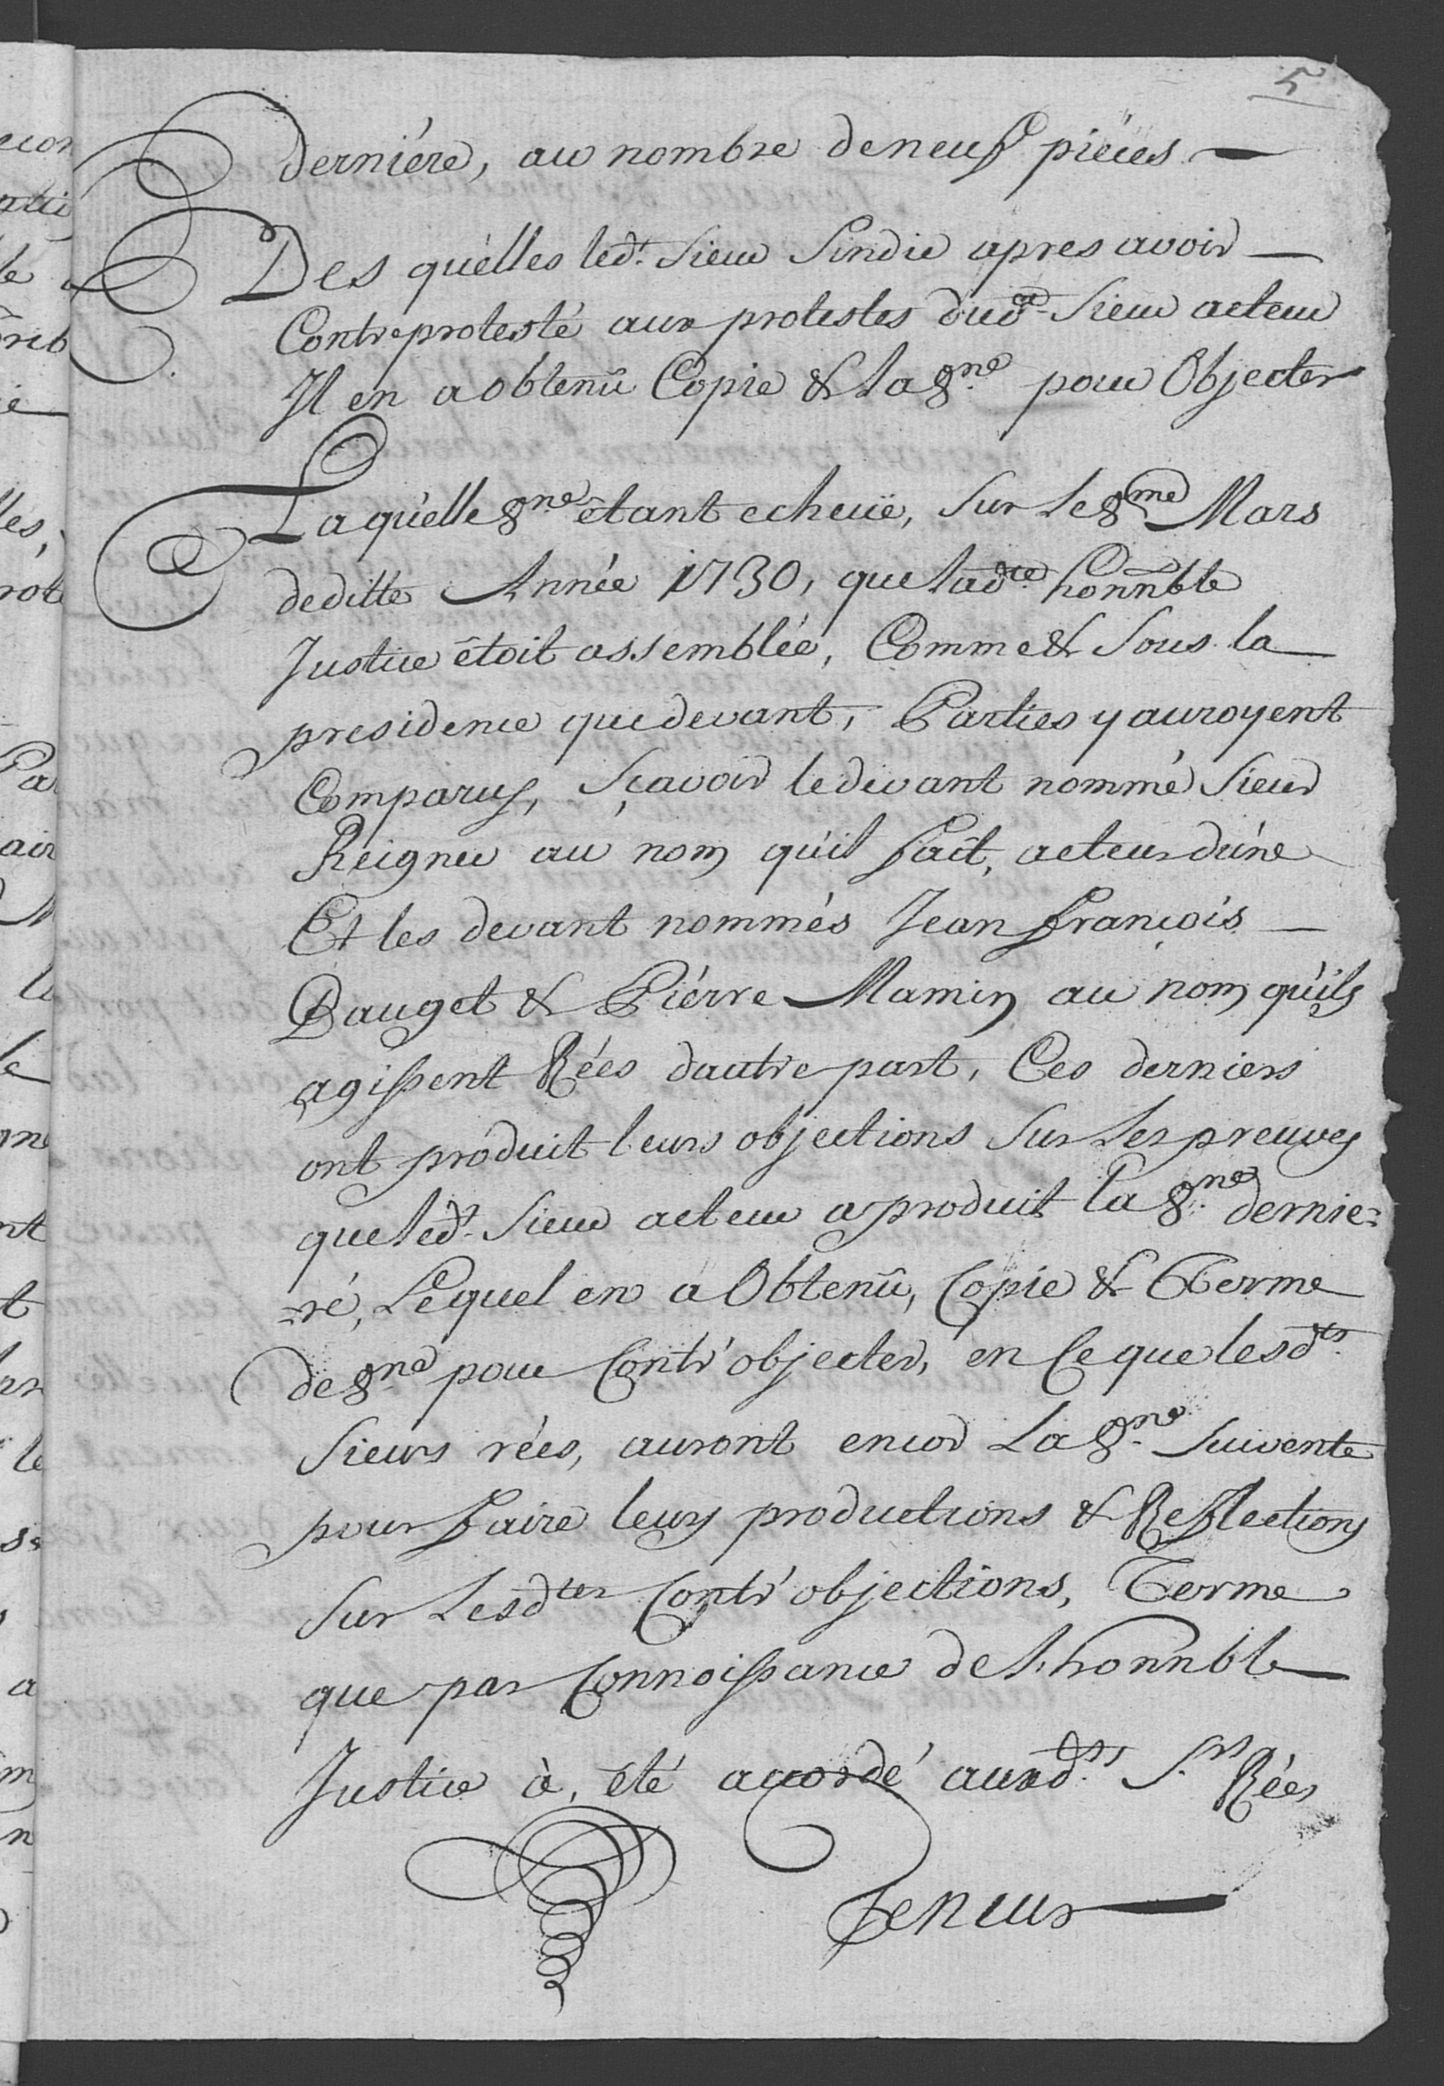 5
derniére, au nombre de neuf piéces
Des quélles led.t Sieur Sindic apres avoir
Contreprotesté aux protestes dud.t Sieur acteur
Il en a obtenû Copie & la 8.ne pour Objecter
Laquélle 8.ne êtant echeüe, Sur le 8.me Mars
de ditte Année 1730, que lad.te honnble
Justice êtoit assemblée, Comme & Sous la
presidence que devant, Parties y auroyent
Comparus, Sçavoir le devant nommé Sieur
Reigner au nom qu'il fait, acteur d'une
Et les devant nommés Jean François
Dauget & Piérre Mamin au nom qu'ils
agissent Rées dautre part, Ces derniers
ont produit leurs objections Sur Les preuves
que led.t Sieur acteur a produit la 8.ne dernie=
=re, Lequel en a Obtenû, Copie & Terme
de 8.ne pour Contr'objecter, en Ce que lesd.ts
Sieurs rées, auront encor La 8.ne Suivente
pour faire leurs productions & Reflections
Sur Lesd.tes Contr'objections, Terme
que par Connoissance de L'honnble
Justice à, êté accordé auxd.ts S.rs Rées
Teneur